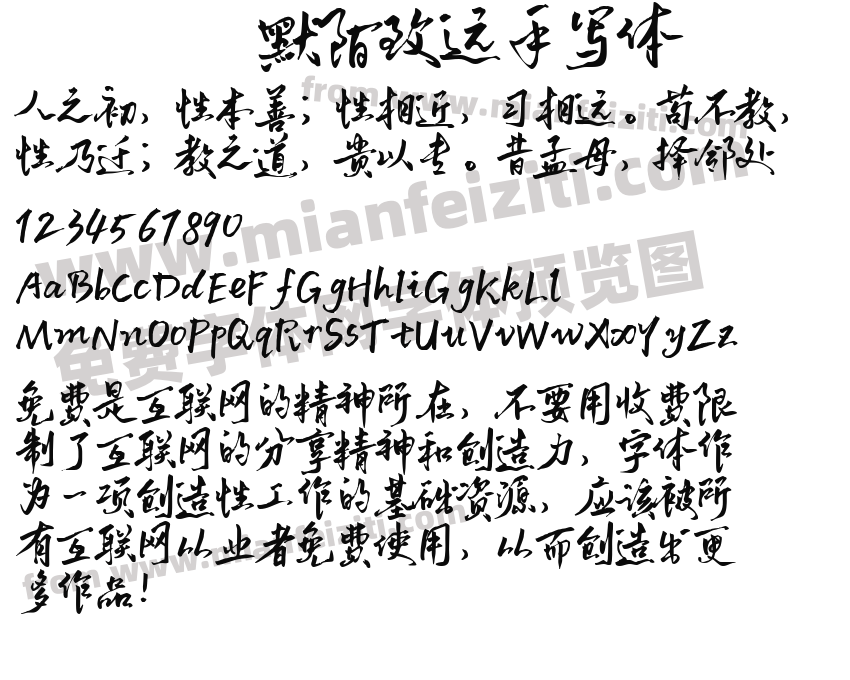 默陌致远手写体
人之初，性本善；性相近，习相远。苟不教，
性乃迁；教之道，贵以专。昔孟母，择邻处
1234567890
AaBbCcDdEeFfGgHhIiGgKkLl
MmNnOoPpQqRrSsTtUuVvWwXxYyZz
免费是互联网的精神所在，不要用收费限
制了互联网的分享精神和创造力，字体作
为一项创造性工作的基础资源，应该被所
有互联网从业者免费使用，从而创造出更
多作品！
from www.mianfeiziti.com
www.mianfeiziti.com
免费字体网字体预览图
from www.mianfeiziti.com